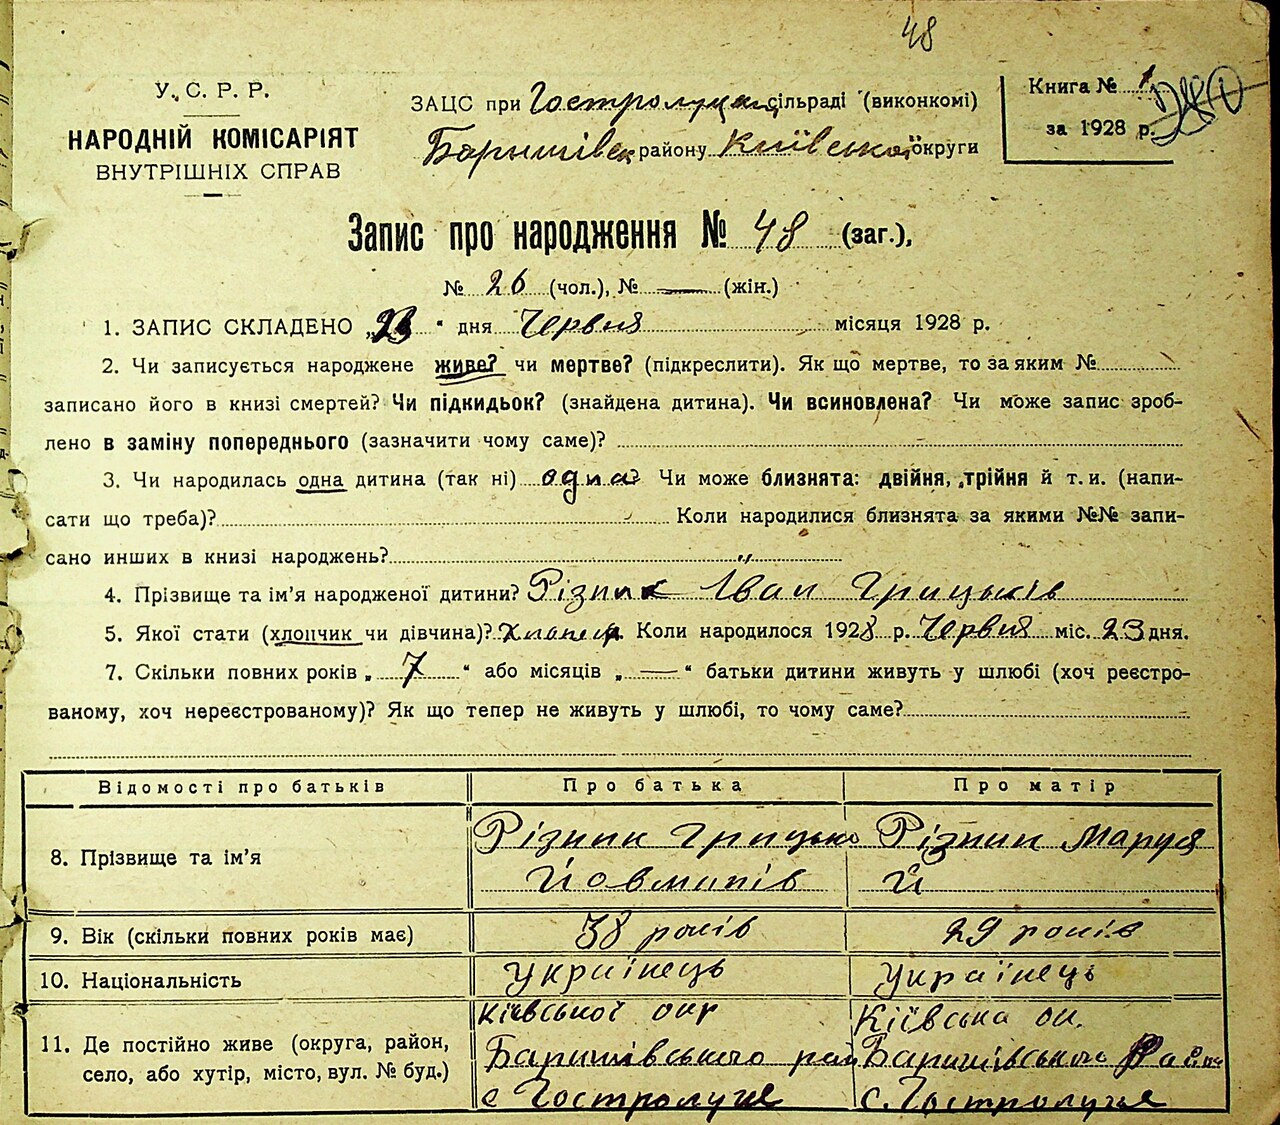 48
У. С. Р. Р.
НАРОДНІЙ КОМІСАРІЯТ
ВНУТРІШНІХ СПРАВ
ЗАЦС при Гостролуцкій сільраді (виконкомі)
Баришівськ району Київської округи
Книга № 1
за 1928 р.
Запис про народження № 48 (заг.),
№ 26 (чол.), № — (жін.)
1. ЗАПИС СКЛАДЕНО „23“ дня Червня місяця 1928 р.
2. Чи записується народжене живе? чи мертве? (підкреслити). Як що мертве, то за яким №
записано його в книзі смертей? Чи підкидьок? (знайдена дитина). Чи всиновлена? Чи може запис зроб-
лено в заміну попереднього (зазначити чому саме)?
3. Чи народилась одна дитина (так ні) одна? Чи може близнята: двійня, трійня й т. и. (напи-
сати що треба)? Коли народилися близнята за якими №№ запи-
сано инших в книзі народжень? „
4. Прізвище та ім’я народженої дитини? Різник Іван Грицьків
5. Якої статі (хлопчик чи дівчина)? Коли народилося 1928 р. Червня міс. 23 дня.
7. Скільки повних років „ 7 “ або місяців „ — “ батьки дитини живуть у шлюбі (хоч реєстро-
ваному, хоч нереєстрованому)? Як що тепер не живуть у шлюбі, то чому саме?
Відомості про батьків Про батька Про матір
8. Прізвище та ім’я Різник Грицько Різник Маруся
Йовмипів Й
9. Вік (скільки повних років має) 38 років 29 років
10. Національність Українець Українець
11. Де постійно живе (округа, район, село, або хутір, місто, вул. № буд.)
Київської окр Київська ок.
Баришівського рай Баришівського Райо
с Гостролуче с. Гостролуче